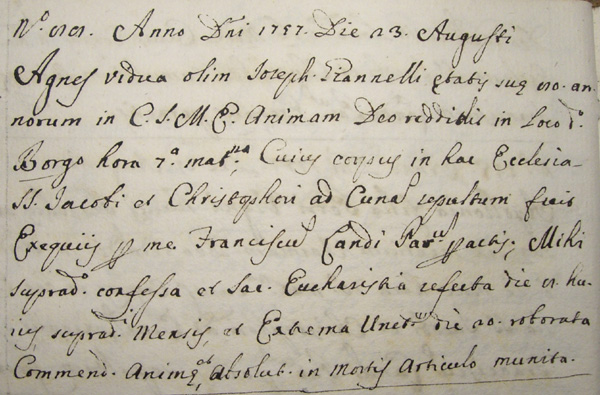 N.º 88. Anno Dñi 1757. Die 23. Augusti
Agnes vidua olim Joseph. Giannelli ętatis suę 80. an-
norum in C. S. M. E. Animam Deo reddidis in Loco d.º
Borgo hora 7.ª mat.na, Cuius corpus in hac Ecclesia
SS. Jacobi et Christophori ad Cunas sepultum fuit
Exequiis p me. Franciscus Landi Par.us pactis; Mihi
suprad.º confessa et Sac. Eucharistia refecta die 8. hu-
ius suprad.i Mensis, et Extrema Unct.ne die 20. roborata
Commend. Animę, et Absolut. in Mortis Articulo munita.